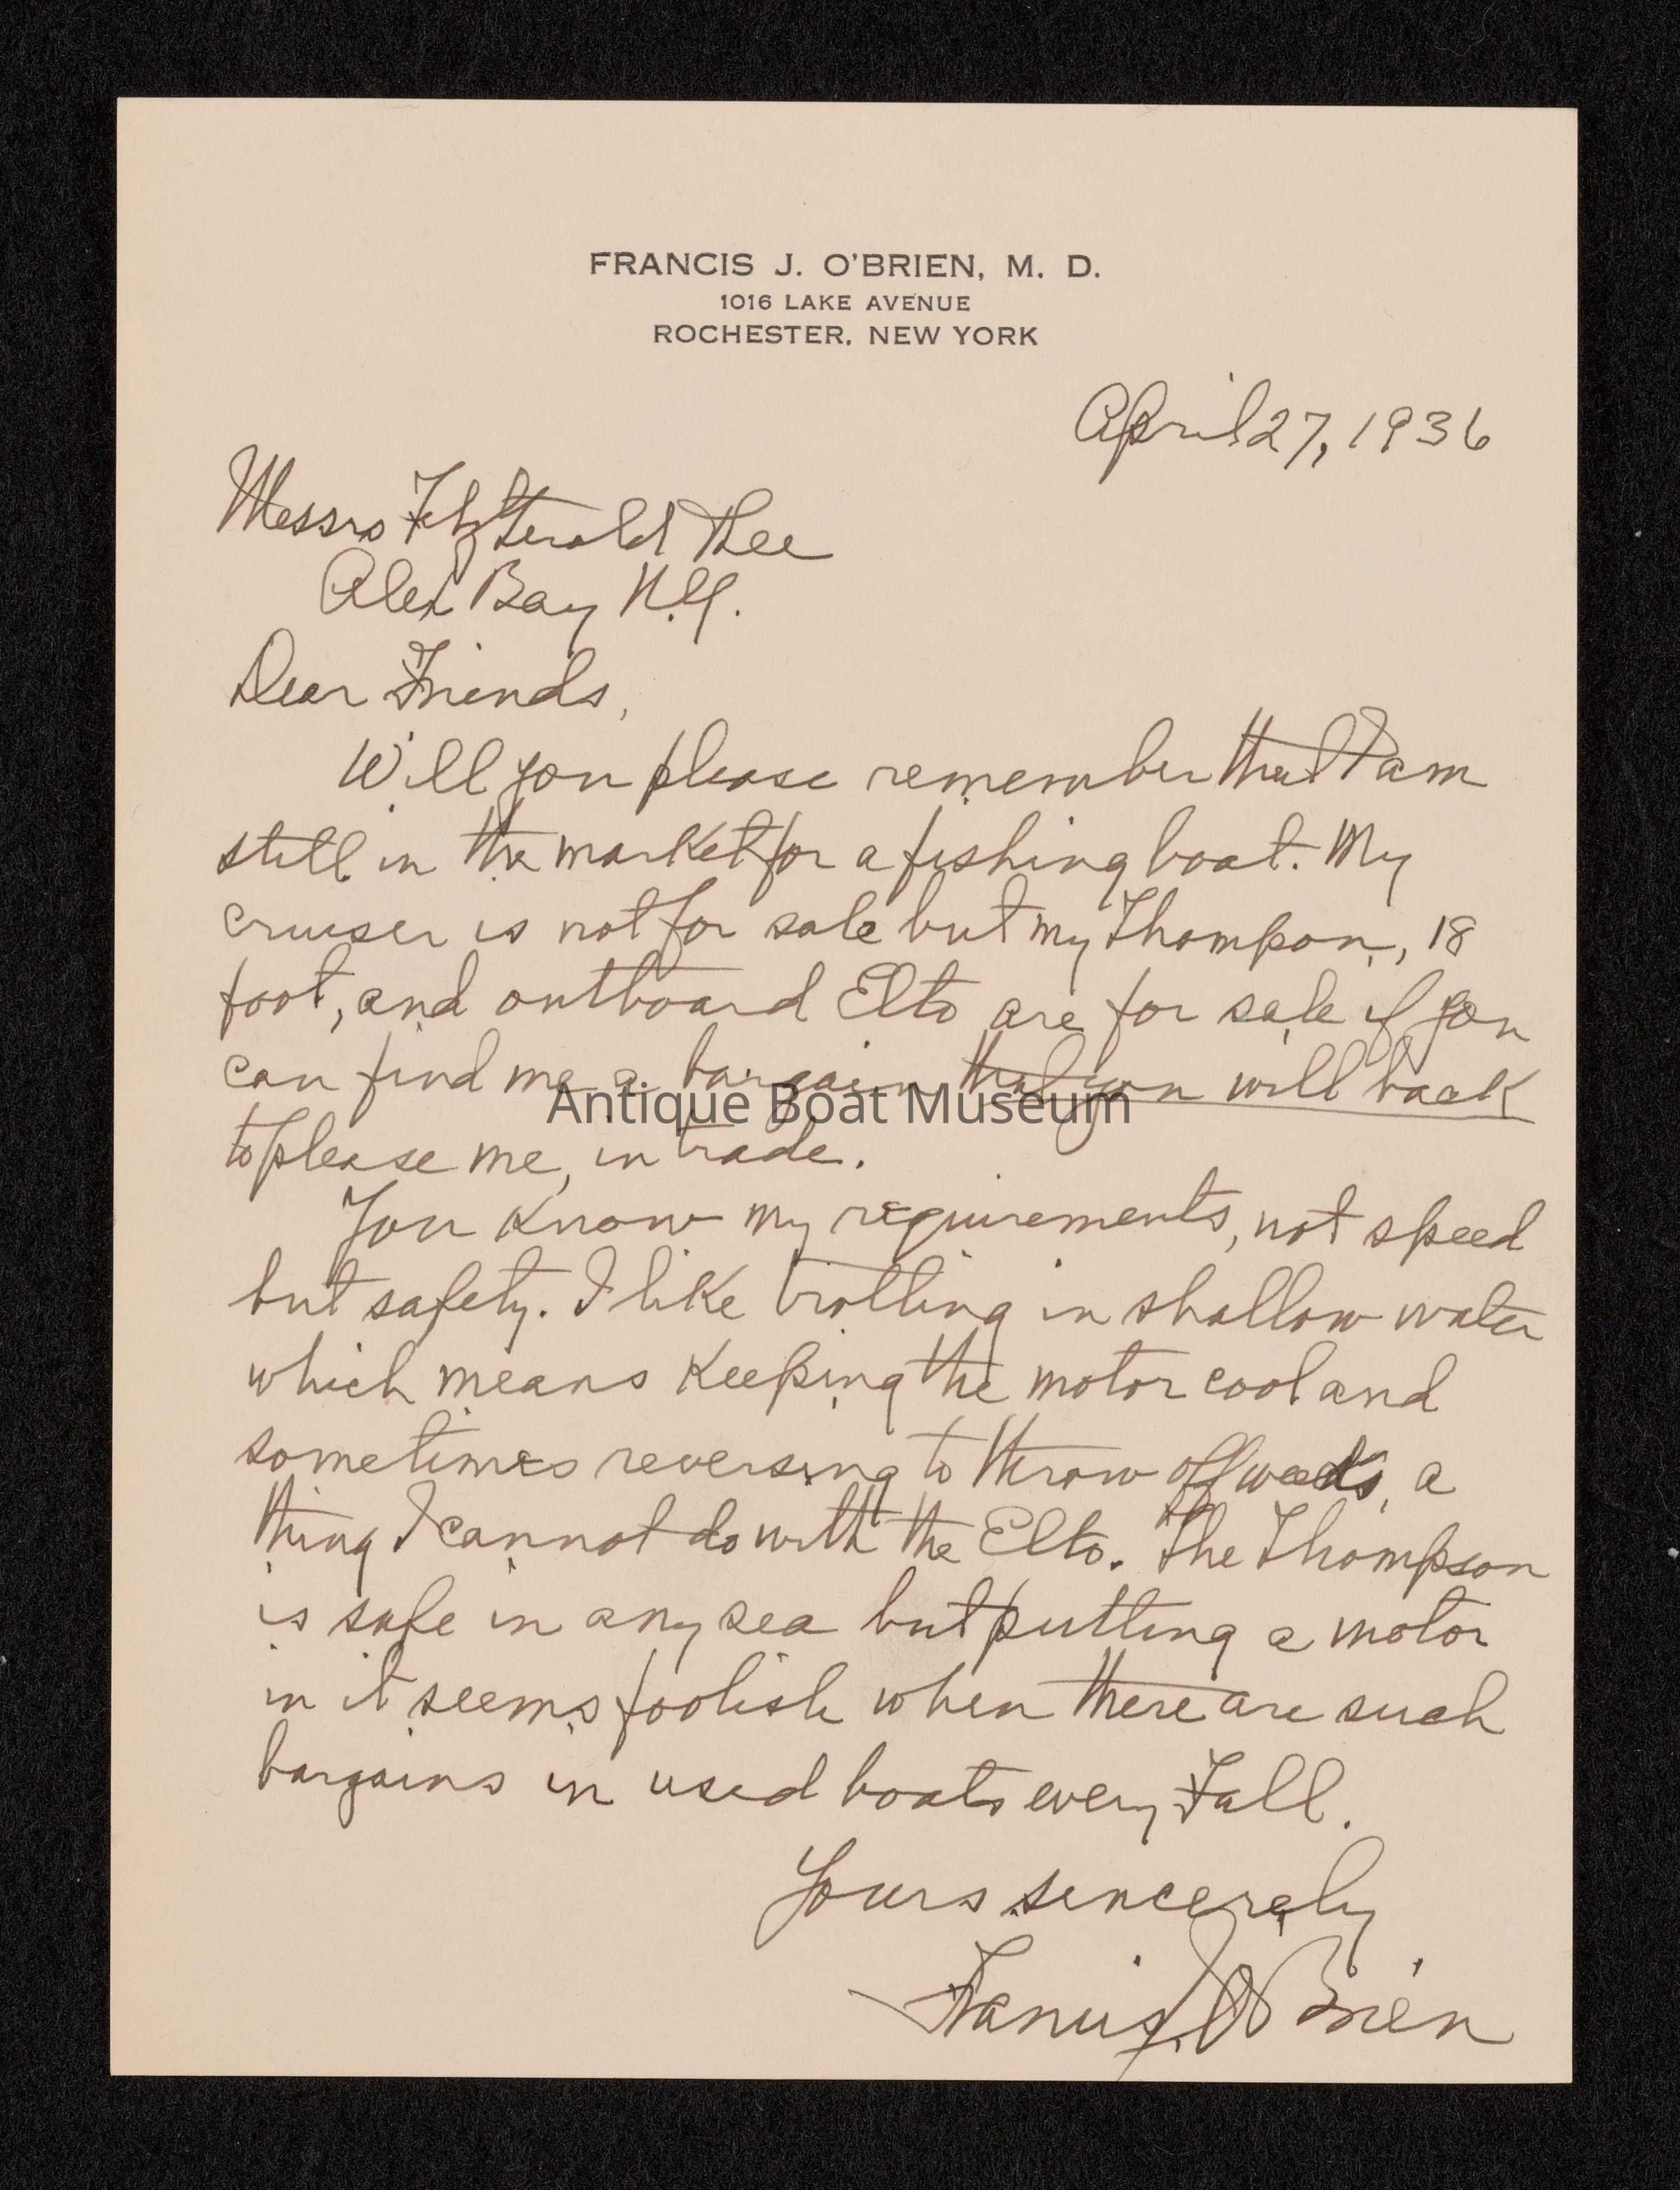 FRANCIS J. O'BRIEN, M. D.
1016 LAKE AVENUE
ROCHESTER, NEW YORK
April 27, 1936
Messrs Fitzgerald &
Alex Bay N.Y.
Dear Friends,
Will you please remember that I am
still in the market for a fishing boat. My
cruiser is not for sale but my Thompson, 18
foot, and outboard Elto are for sale if you
can find me a bargain that you will back
Antique Boat Museum
to please me, in trade.
You know my requirements, not speed
but safety. I like trolling in shallow water
which means keeping the motor cool and
sometimes reversing to throw off weeds, a
thing I cannot do with the Elto. The Thompson
is safe in any sea but putting a motor
in it seems foolish when there are such
bargains in used boats every Fall.
Yours sincerely
Francis J. O'Brien